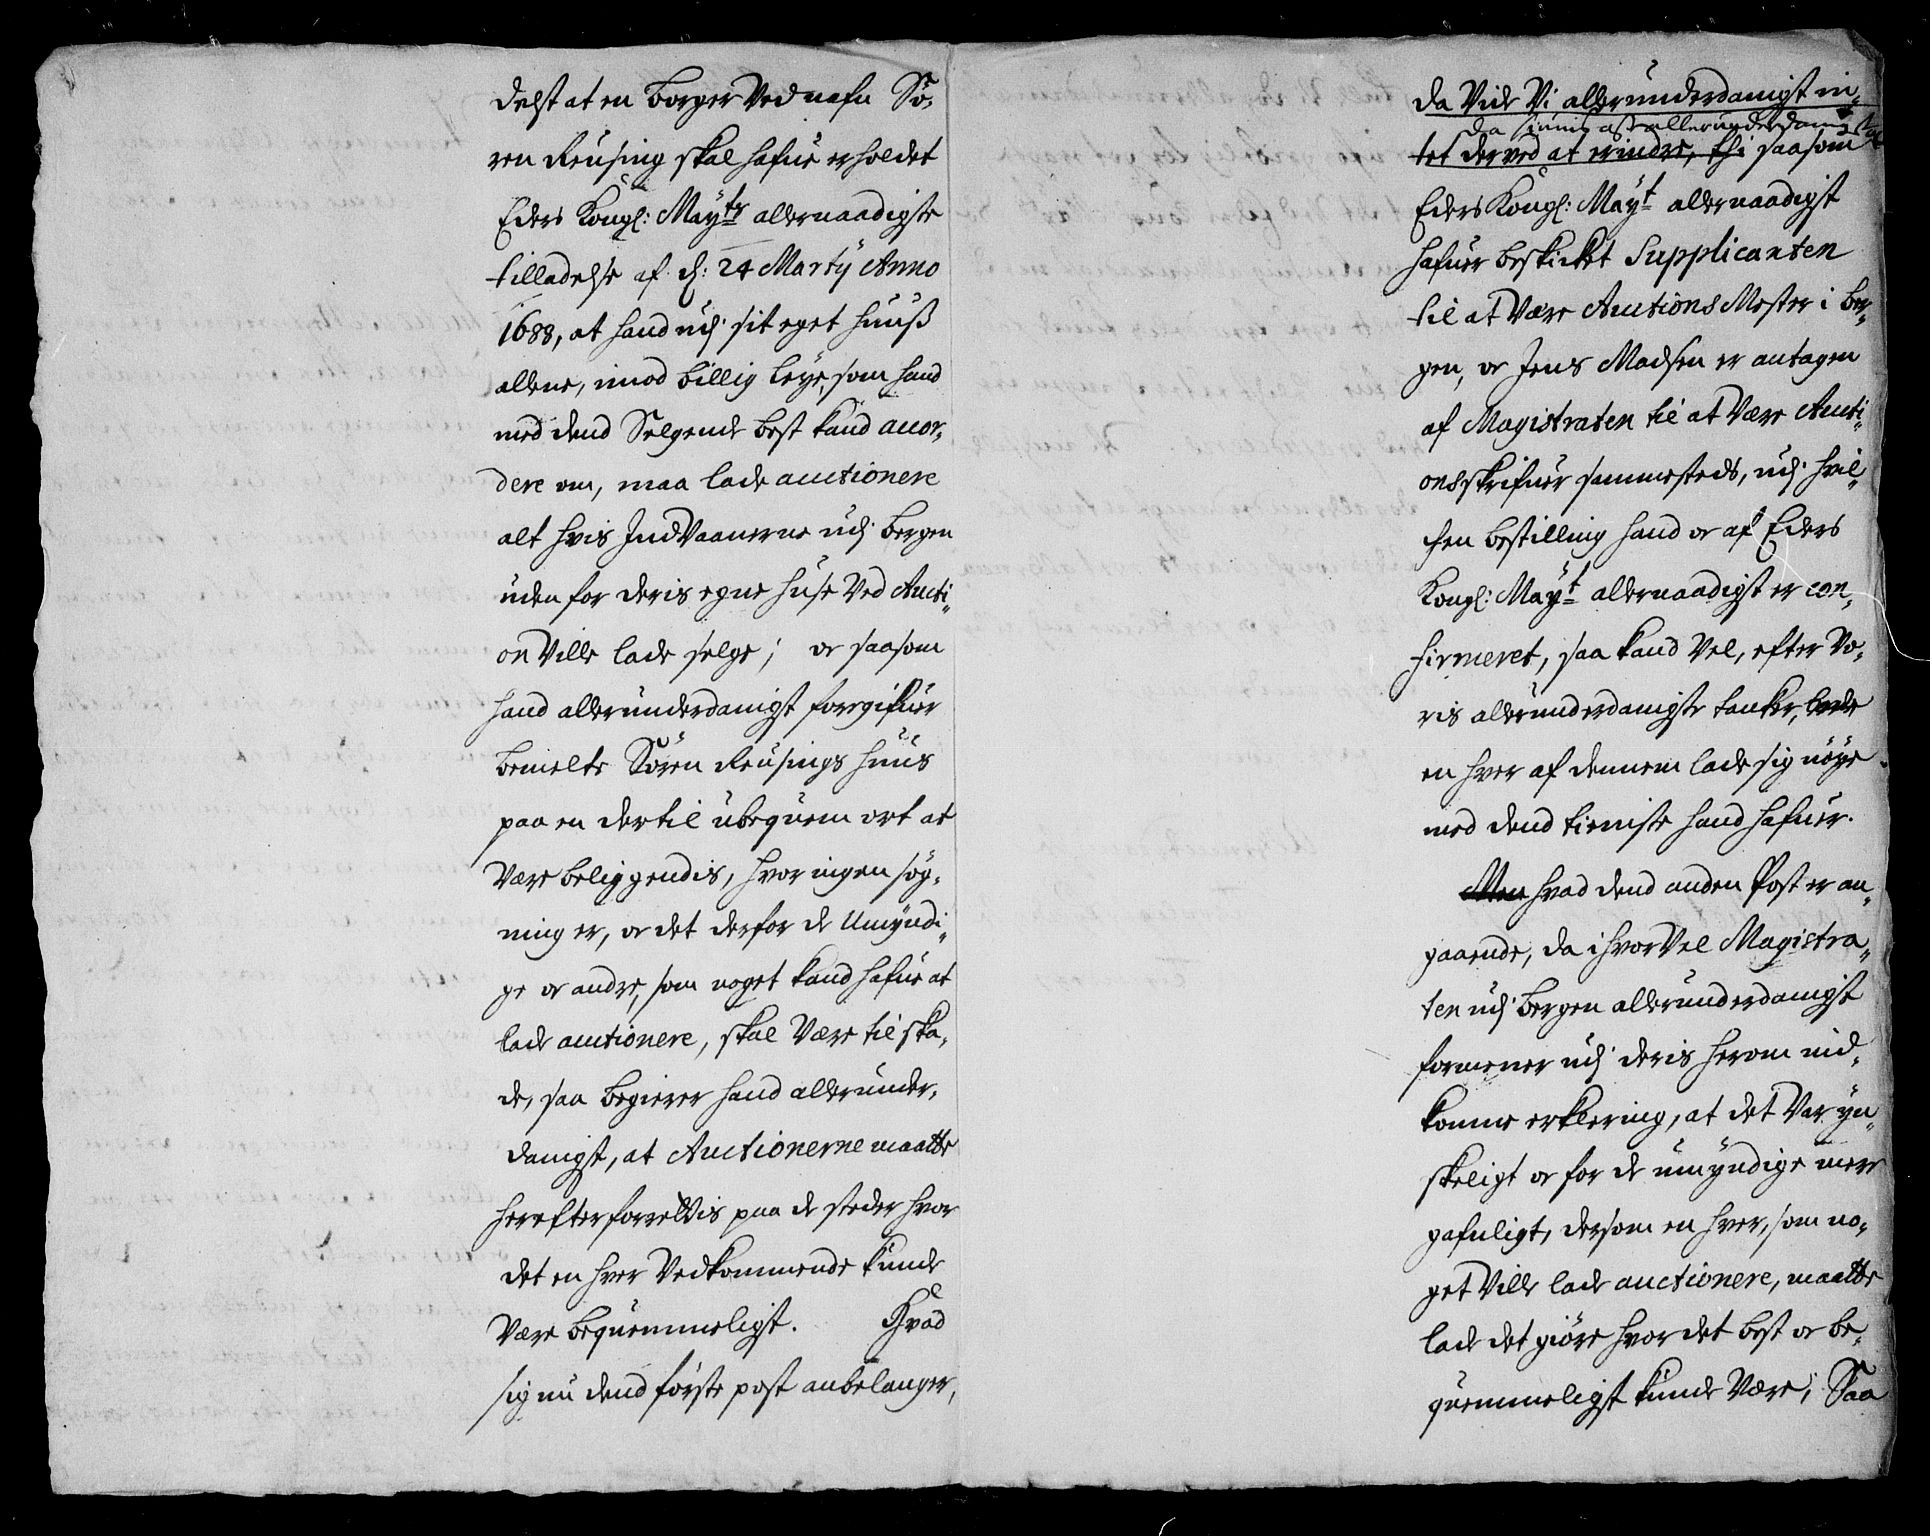 delst at en borger Ved nafn Sö-
ren Reusing skal hafue erholdet
Eders Kongl: Maÿts allernaadigste
tilladelse af d: 24 Martÿ Anno
1688, at hand udj sit eget huuß
allene, imod billig leÿe, som hand
med dend Selgende best kand accor-
dere om, maa lade auctionere
alt hvis IndVaanerne udj bergen
uden for deris egne huse Ved Aucti-
on Ville lade selge; oc saasom
hand allerunderdanigst foregifuer
bemelte Sören Reusings huus
paa en dertil ubequem ort at
Være beliggendis, hvor ingen sög-
ning er, oc det derfor de Umÿndi-
ge oc andre, som noget kand hafue at
lade auctionere, skal Være til ska-
de, saa begierer hand allerunder-
danigst, at Auctionerne maatte
herefter forrettis paa de steder hvor
det en hver Vedkommende kunde
Være bequemmeligst. Hvad
sig nu dend förste post anbelanger,
da Vide Vi allerunderdanigst in-
da allerunderdanigst
tet derved at erindre, thi saasom
Eders Kongl: Maÿt allernaadigst
hafuer beskicket Supplicanten
til at Være Auctions Mester i ber-
gen, oc Jens Madsen er antagen
af Magistraten til at Være Aucti-
onsskrifuer sammesteds, udj hvil-
chen bestilling hand oc af Eders
Kongl: Maÿt allernaadigst er con-
firmeret, saa kand Vel, efter Vo-
ris allerunderdanigste tanker,
en hver af dennem lade sig nöÿe
med dend tieniste hand hafuer.
Men hvad dend anden Post er an-
gaaende, da ihvorVel Magistra-
ten udj bergen allerunderdanigst
formener udj deris herom ind-
komne erklering, at det Var ÿn-
skeligt oc for de umÿndige mere
gafnligt, dersom en hver, som no-
get Ville lade auctionere, maatte
lade det giöre hvor det best oc be-
quemmeligst kunde Være; Saa